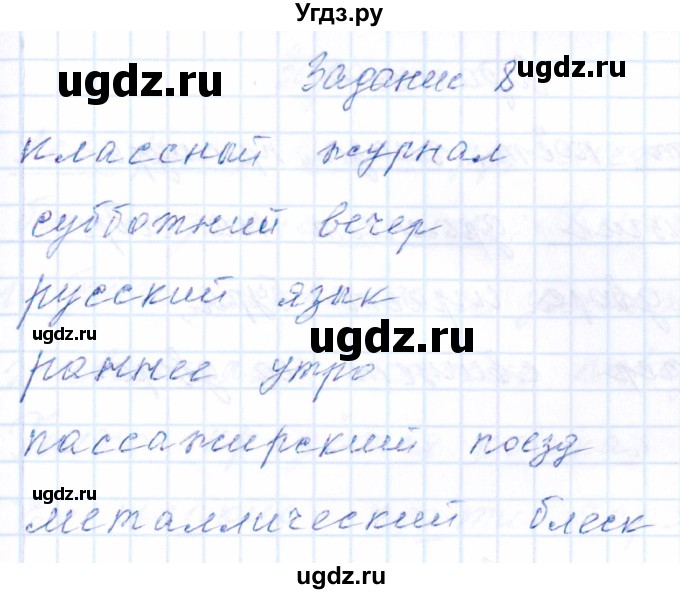 Угдз.ру
ugdz.ru
Задание 8
классный журнал
субботний вечер
русский язык
ugdz.ru
ugdz.ru
раннее утро
пассажирский поезд
ugdz.ru
металлический блеск
ugdz.ru